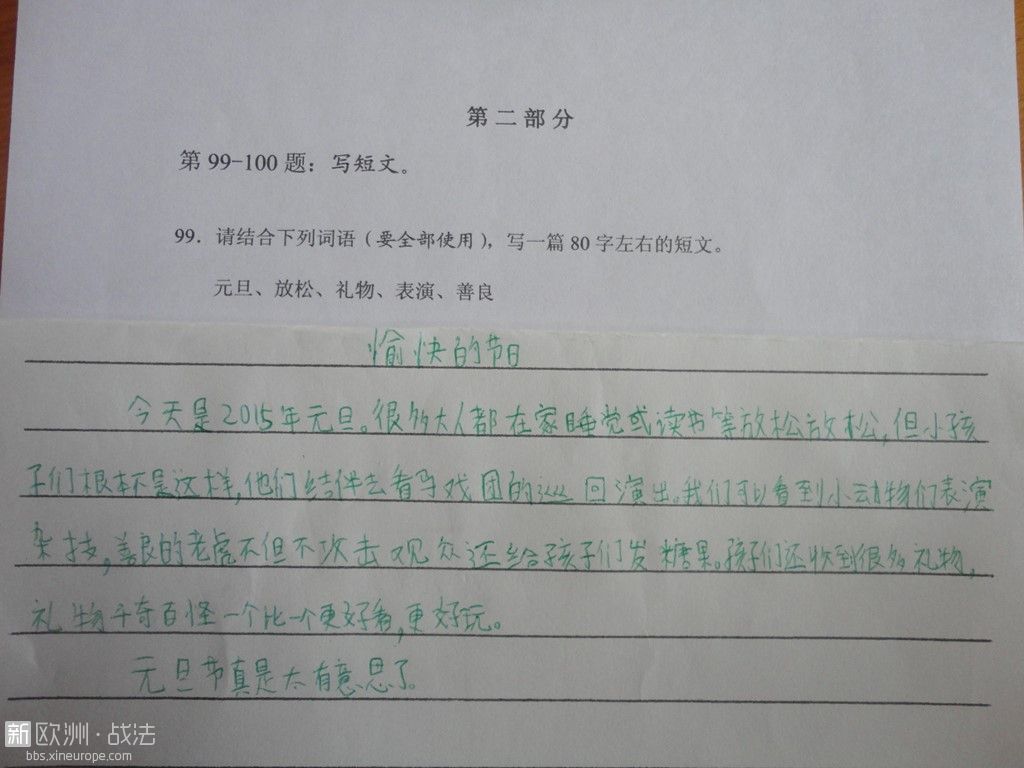 第二部分
第99-100题：写短文。
99．请结合下列词语（要全部使用），写一篇80字左右的短文。
元旦、放松、礼物、表演、善良
愉快的节日
今天是2015年元旦。很多大人都在家睡觉或读书等放松放松，但小孩
子们根本不是这样，他们结伴去看马戏团的巡回演出。我们可以看到小动物们表演
杂技，善良的老虎不但不攻击观众还给孩子们发糖果。孩子们还收到很多礼物，
礼物千奇百怪一个比一个更好看，更好玩。
元旦节真是太有意思了。
新欧洲·战法
bbs.xineurope.com